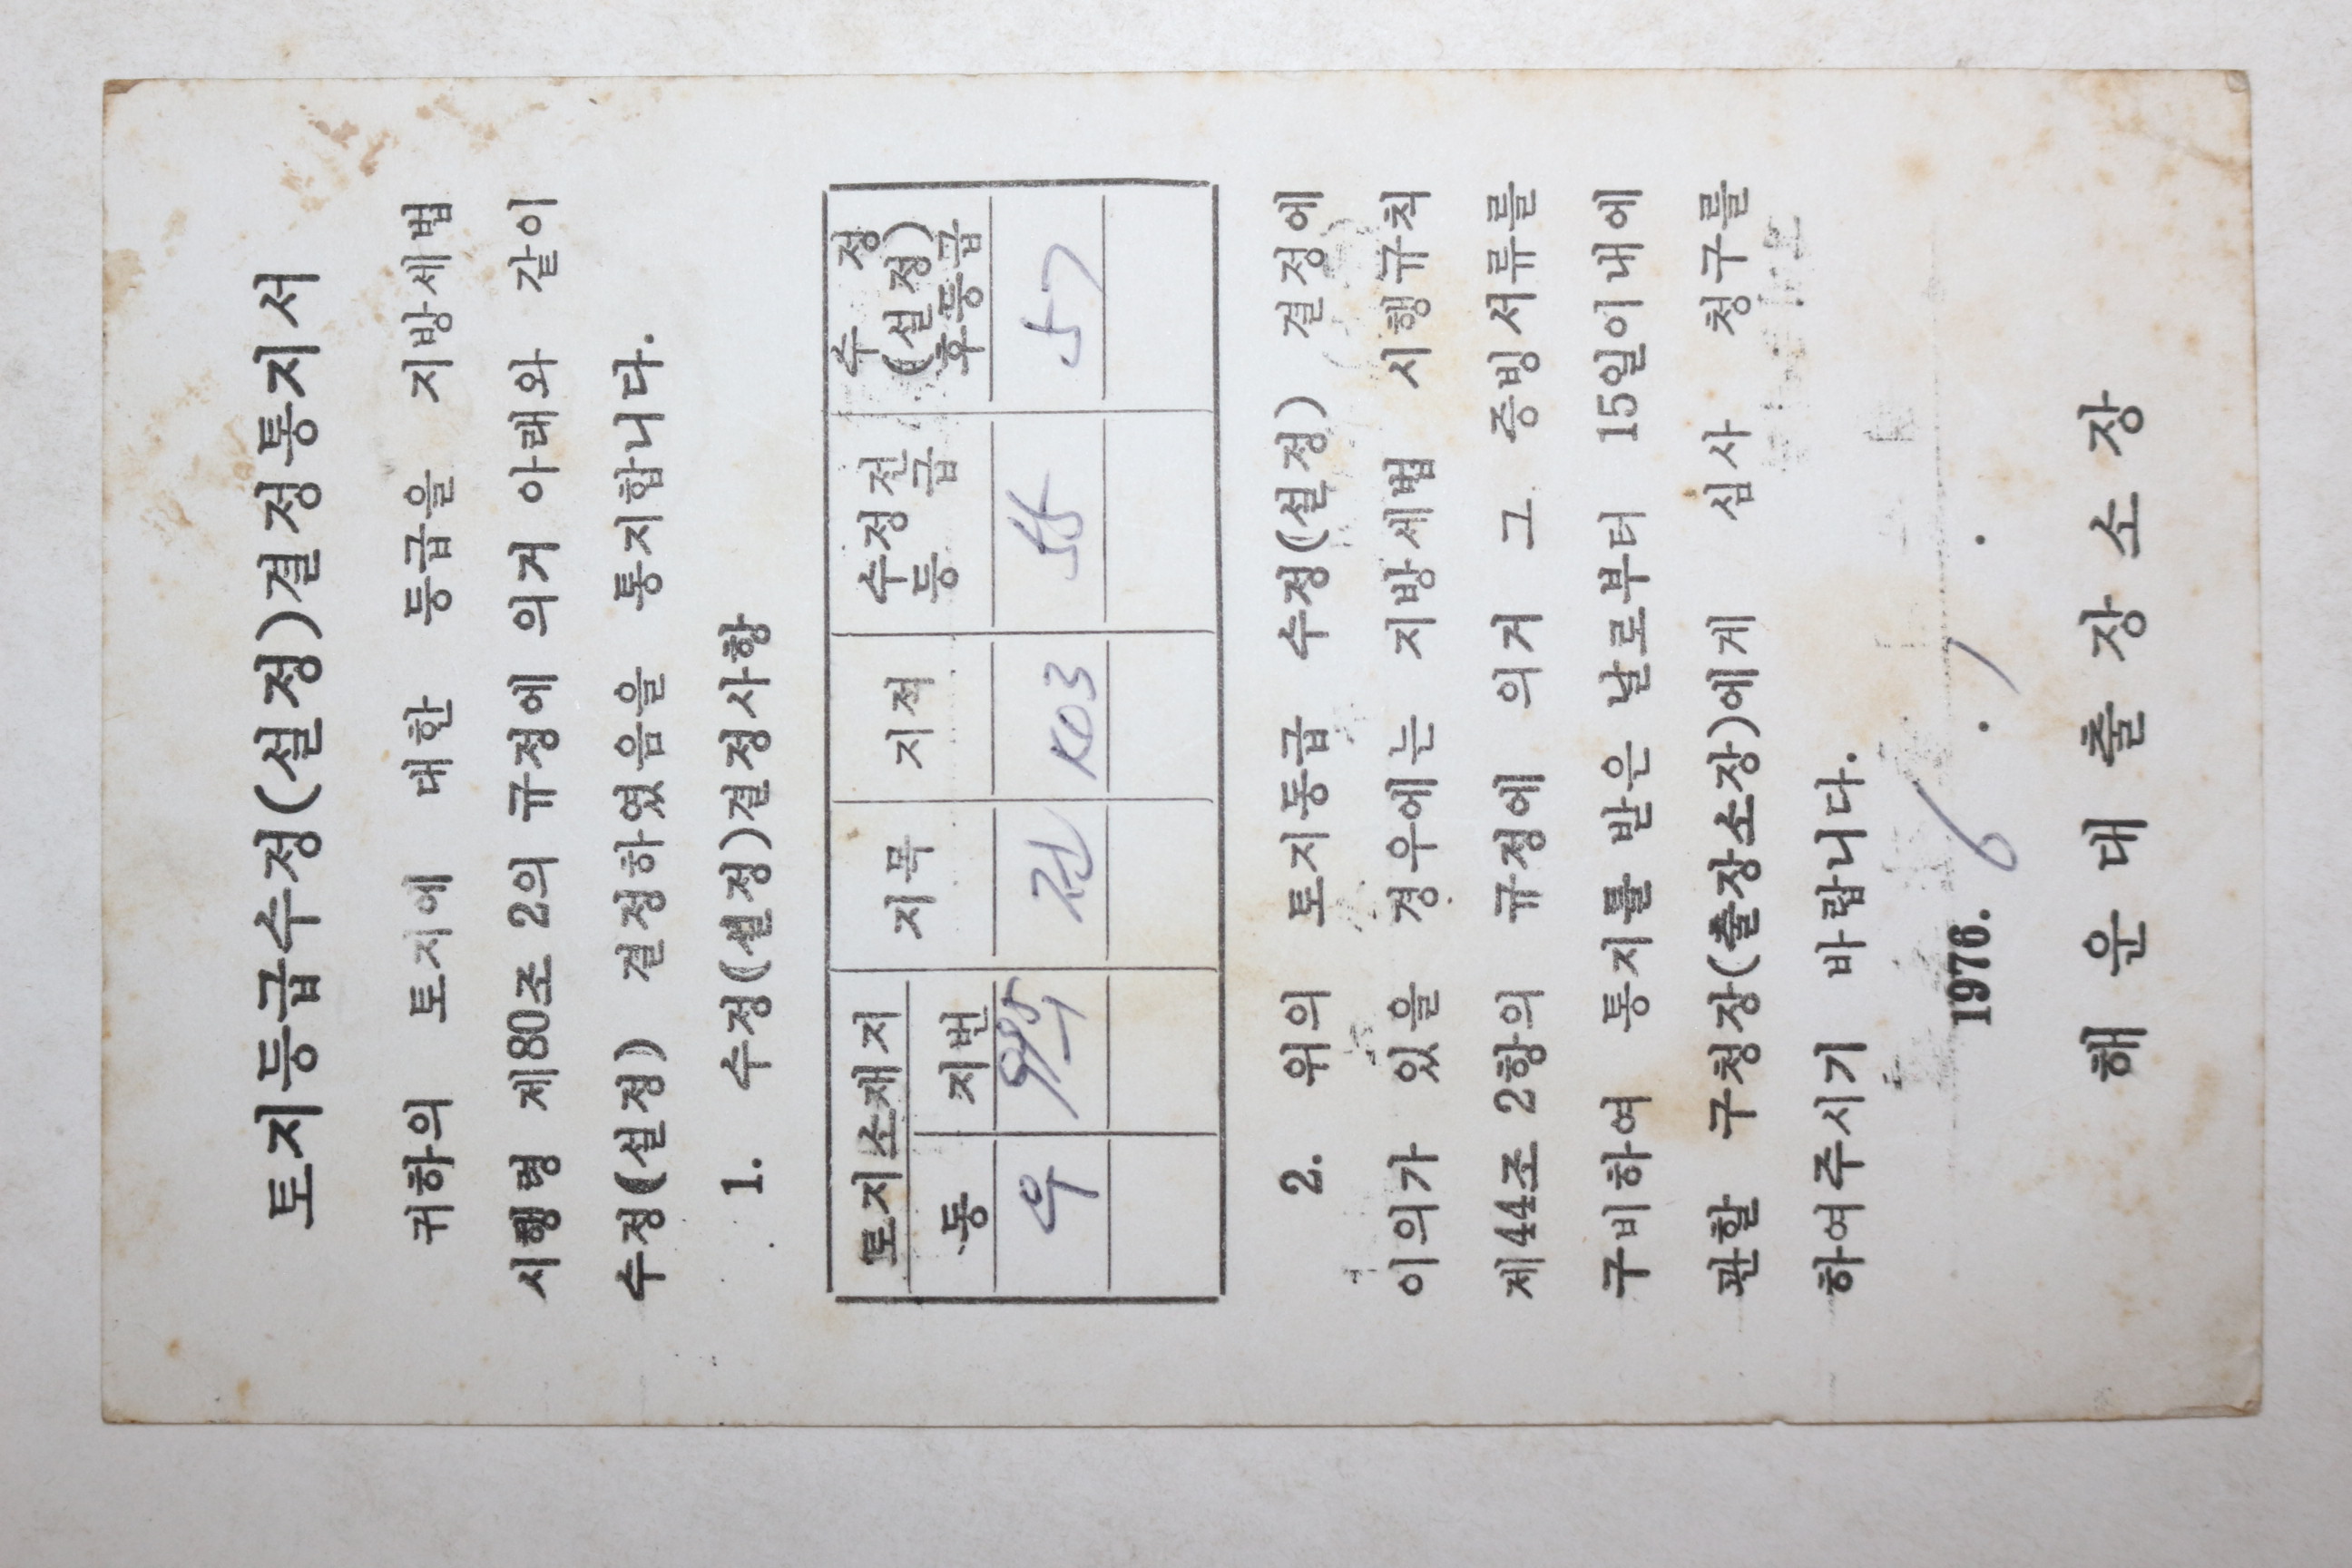 토지등급수정(설정)결정통지서
귀하의 토지에 대한 등급을 지방세법
시행령 제80조 2의 규정에 의거 아래와 같이
수정(설정) 결정하였음을 통지합니다.
1. 수정(설정)결정사항
토지소재지 지목 지적 수정전등급 수정(설정)후등급
동 지번
우 전 56 57
2. 위의 토지등급 수정(설정) 결정에
이의가 있을 경우에는 지방세법 시행규칙
제44조 2항의 규정에 의거 그 증빙서류를
구비하여 통지를 받은 날로부터 15일이내에
관할 구청장(출장소장)에게 심사 청구를
하여주시기 바랍니다.
1976. 6. 1.
해운대출장소장